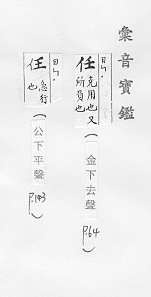 彙音寶鑑
任 克用也又所負也 ㄖㄣˋ (金下去聲) P.64
任 急行也 ㄖㄣˋ (公下平聲) P.143